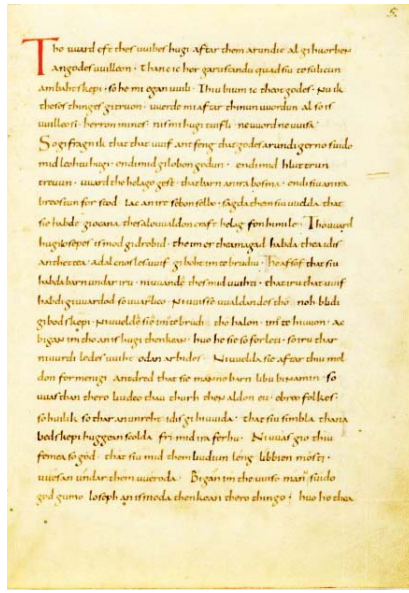 5.
Tho uuard eft thes uuibes hugi aftar them arundie al gihuorben
an godes uuilleon · Than ic her garu standu quad siu te sulicun
ambahtskepi · so he mi egan uuili · Thiu bium ic theotgodes · Nu ik
theses thinges gitruon · uuerde mi aftar thinun uuordun al so is
uuilleo si · herron mines · nis mi hugi tuifli · ne uuord ne uuisa ·
So gifragn ik that that uuif antfeng that godes arundi gerno suido
mid leohtu hugi · endi mid gilobon godun · endi mid hluttrun
treuun · uuard the helago gest · that barn an ira bosma · endi siu an ira
breostun forstod · iac an ire sebon selbo · sagda them siu uuelda that
sie habde giocana thes alouualdon craft helag fon himile · Tho uuard
hugi iosepes is mod gidrobid · the im er thea magad habda thea idis
anthettea · adalcnosles uuif giboht im te brudiu · He afsof that siu
habda barn undar iru · ni uuanda thes mid uuihti · that iru that uuif
habdi giuuardod so uuarlico · Ni uuisse uualdandes tho · noh blidi
gibodskepi · Ni uuelda sie im te brudi tho halon · im te hiuuon · ac
bigan im tho an is hugi thenkean · huo he sie so forleti · so iru thar
ni uurdi ledes uuiht odan arbides · Ni uuelda sie aftar thiu mel
don for menigi · antdred that sie manno barn libu binamin · so
uuas than thero liudeo thau thurh then aldon eu · ebreo folkes ·
so huilik so thar an unreht idis gihiuuida · that siu simbla thana
bedskepi buggean scolda fri mid ira ferhu · Ni uuas gio thiu
femea so god · that siu mid them liudiun leng libbien mosti ·
uuesan undar them uueroda · Bigan im the uuiso mann suido
god gumo ioseph an is moda thenkean thero thingo · huo he thea